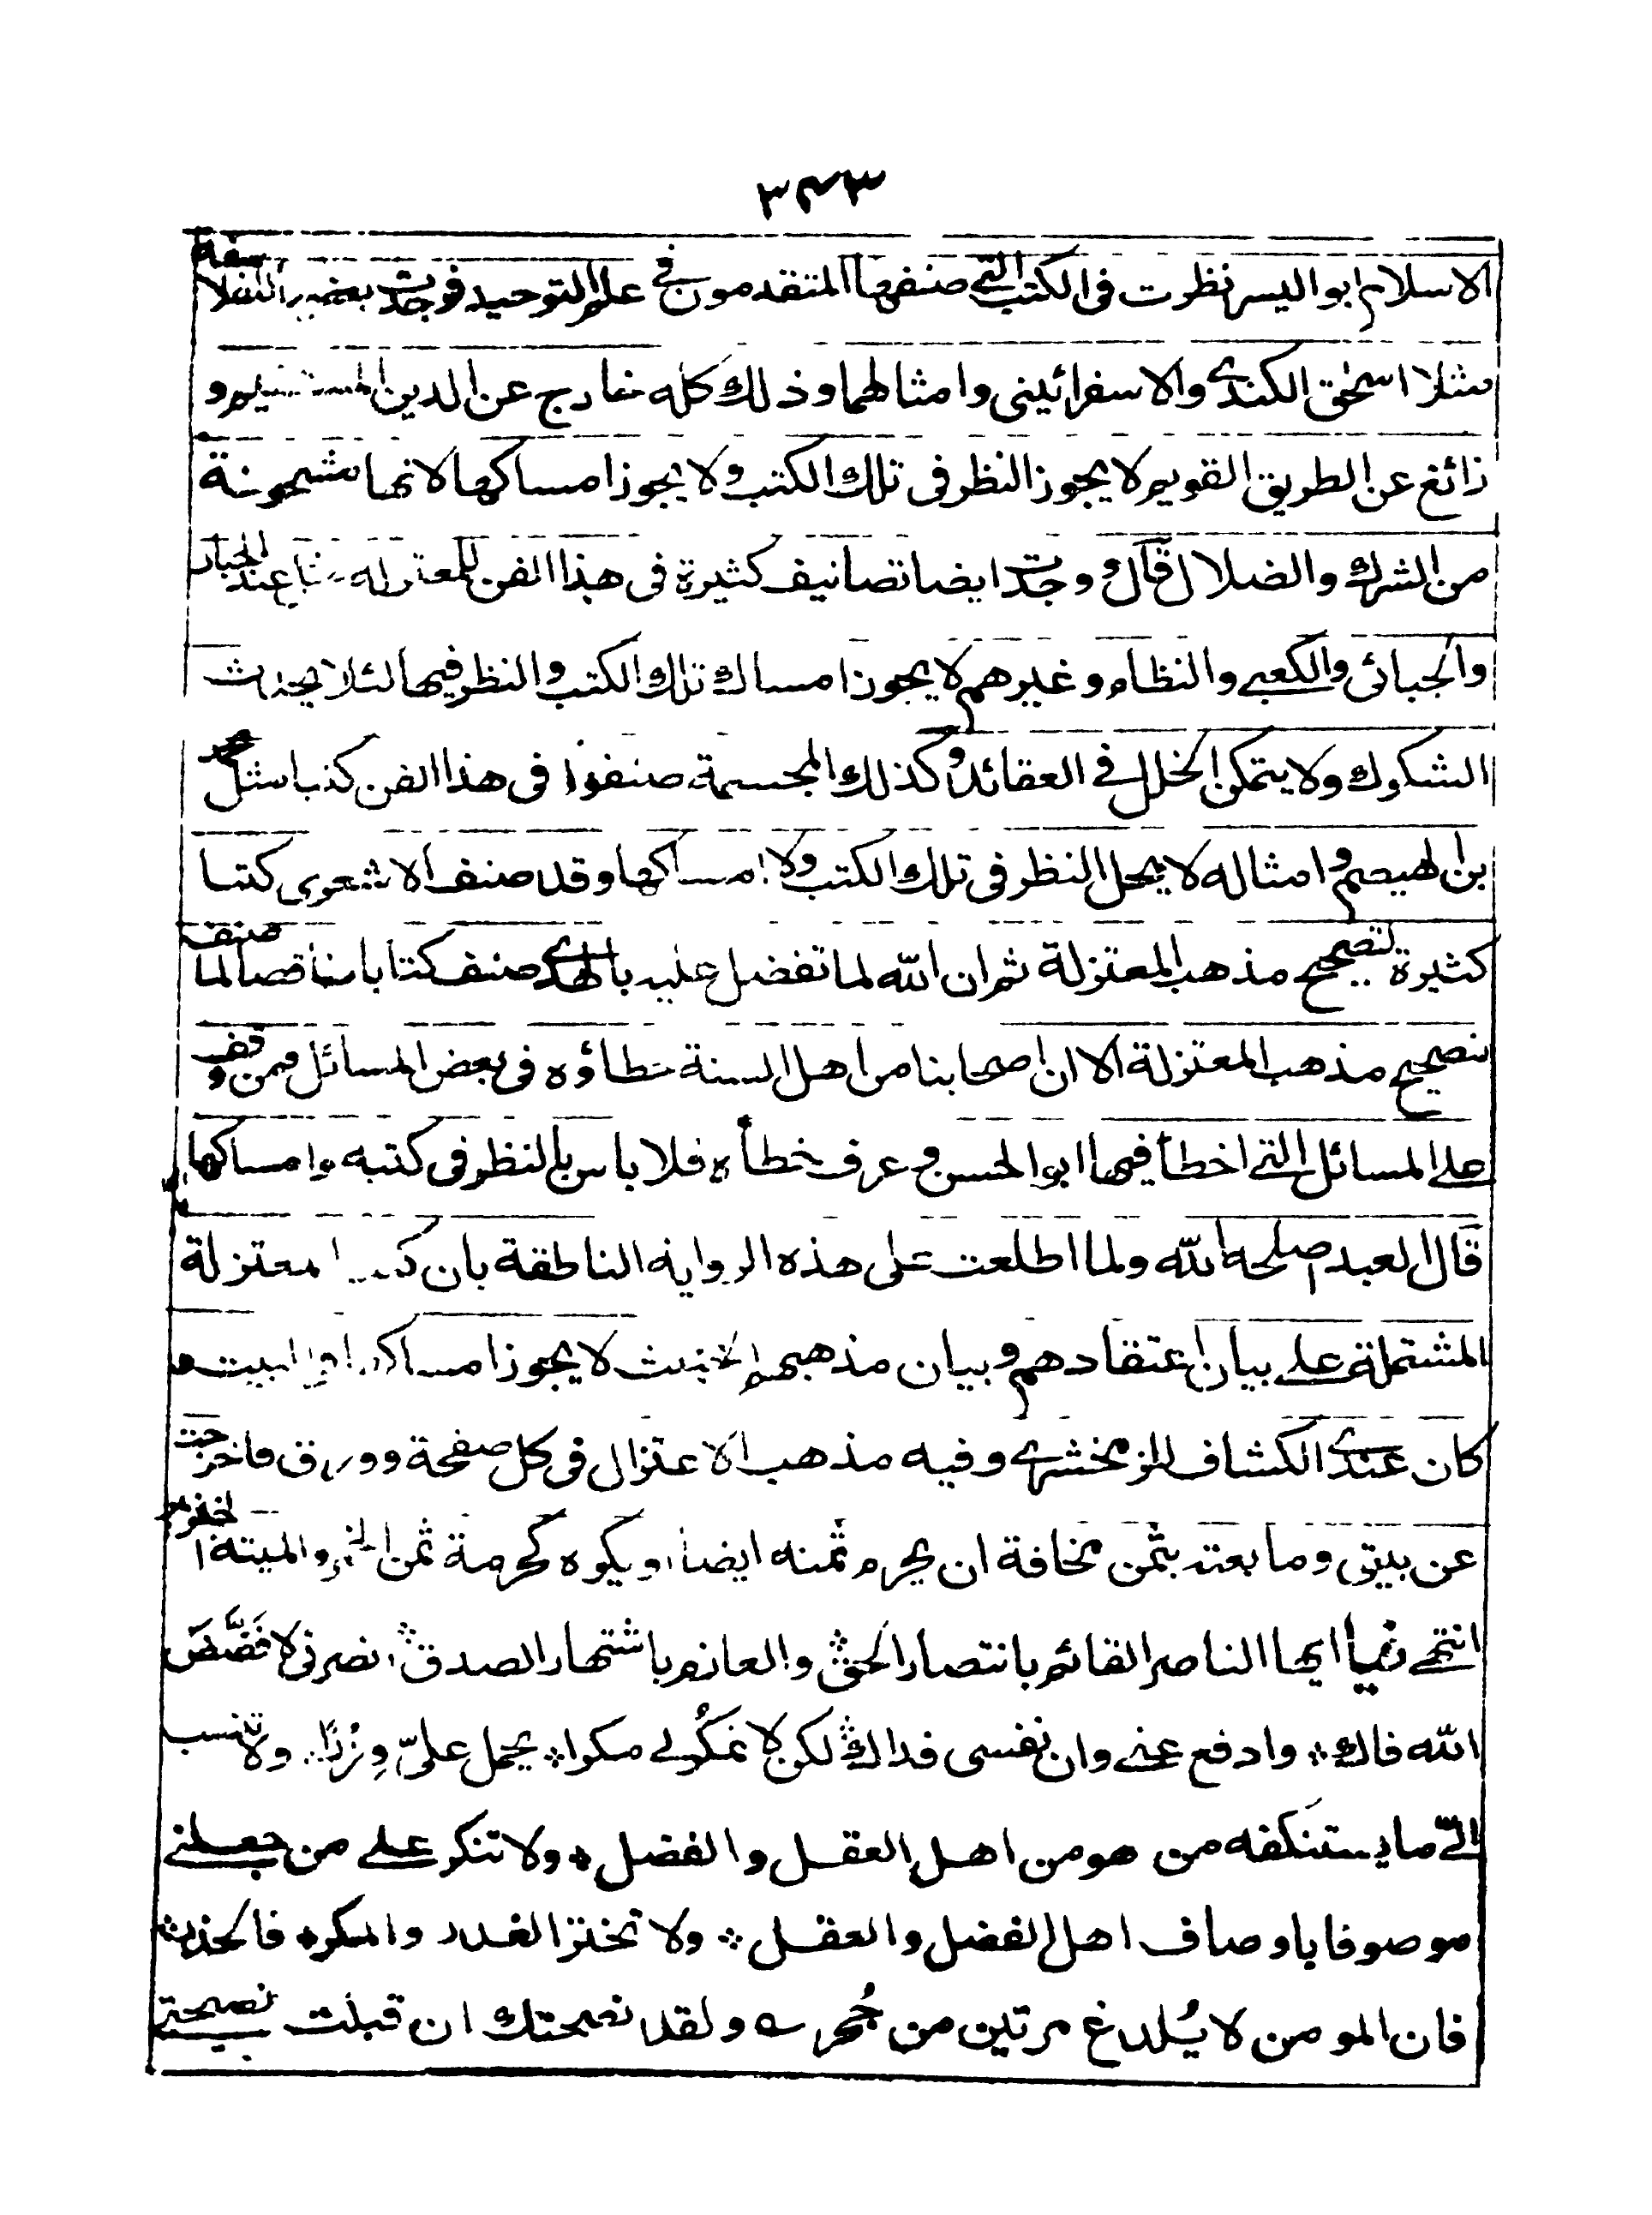 ٣٤٣
الاسلام ابو اليسر نظرت فى الكتب التى صنفها المتقدمون فى علم التوحيد فوجدت بعضها للفلاسفة
مثل اسحٰق الكندى والاسفرائينى وامثالهما وذلك كله خارج عن الدين المستقيم و
زائغ عن الطريق القويم لا يجوز النظر فى تلك الكتب ولا يجوز امساكها لانها مشحونة
من الشرك والضلال قال ووجدت ايضا تصانيف كثيرة فى هذا الفن للمعتزله عبد الجبار
والجبائى والكعبى والنظام وغيرهم لا يجوز امساك تلك الكتب والنظر فيها لئلا يحدث
الشكوك ولا يتمكن الخلل فى العقائد وكذلك المجسمة صنفوا فى هذا الفن كتبا مثل محمد
بن الهيصم وامثاله لا يحل النظر فى تلك الكتب ولا امساكها وقد صنف الاشعرى كتبا
كثيرة لتصحيح مذهب المعتزلة ثم ان الله لما تفضل عليه بالهدى صنف كتابا مناقضا لما صنف
لتصحيح مذهب المعتزلة الا ان اصحابنا من اهل السنة خطاؤه فى بعض المسائل فمن وقف
على المسائل التى اخطأ فيها ابو الحسن وعرف خطأه فلا باس بالنظر فى كتبه وامساكها
قال العبد اصلحه الله ولما اطلعت على هذه الرواية الناطقة بان المعتزلة
المشتملة على بيان اعتقادهم وبيان مذهبهم الخبيث لا يجوز امساكها فى البيت و
كان عندى الكشاف للزمخشرى وفيه مذهب الاعتزال فى كل صفحة وورق فاخرجت
عن بيتى وما بعته بثمن مخافة ان يحرم ثمنه ايضا او يكره كحرمة ثمن الخمر والميتة
انتهى فيا ايها الناصر القائم بانتصار الحق والعازم باشتهار الصدق انصرنى لا فَضَّضَ
الله فاك وادفع عنى وان نفسى فداك لكن لا تمكُر لى مكرا يحمل علىّ وِزْرًا ولا تنسب
الىّ ما يستنكفه من هو من اهل العقل والفضل ولا تنكر على من جعلنى
موصوفا باوصاف اهل الفضل والعقل ولا تختر الغدر والمكر فالحذر
فان المومن لا يُلدغ مرتين من جُحر ولقد نصحتك ان قبلت نصيحتى